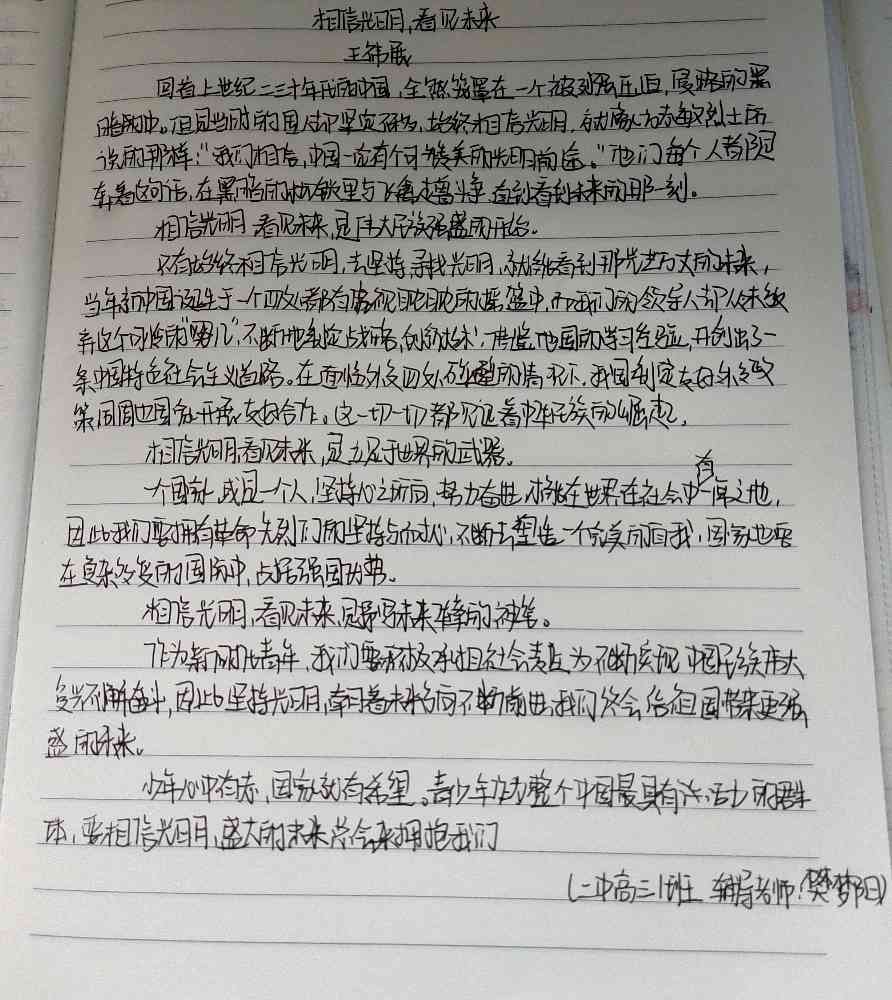 相信光明,看见未来
王韩展
回首上世纪二三十年代的中国,全然笼罩在一个被列强压迫,侵略的黑
暗中。但是当时的国人却坚定不移,始终相信光明,就像方志敏烈士所
说的那样:“我们相信,中国一定有个可赞美的光明前途。”他们每个人都
着这句话,在黑暗的里与飞禽走兽斗争,直到看到未来的那一刻。
相信光明 看见未来,是伟大民族强盛的开始。
只有始终相信光明,去坚持寻找光明,就能看到那光芒万丈的未来,
当年新中国诞生于一个四处都有虎视眈眈的摇篮中,而我们的领导人却从未放
弃这个可怜的“婴儿”,不断地制定战略,创新技术,借鉴他国的学习经验,开创出了一
条中国特色社会主义道路。在面临外交四处碰壁的情况下,我国制定友好外交政
策,同周边国家开展友好合作。这一切一切都见证着中华民族的崛起。
相信光明看见未来,是立足于世界的武器。
一个国家,或是一个人,坚持心之所向,努力奋进,才能在世界在社会中有一席之地,
因此我们要拥有革命先烈们的坚持与耐心,不断去塑造一个完美的自我,国家也要
在复杂多变的国际中,占据强国功势。
相信光明,看见未来,是书写未来华章的神笔。
作为新时代青年,我们要积极承担社会责任为不断实现中国民族伟大
复兴不懈奋斗,因此坚持光明,牵引着未来方向不断前进,我们终会给祖国带来更强
盛的未来。
少年心中有志,国家就有希望。青少年作为整个中国最具有活力的群
体,要相信光明,盛大的未来总会来拥抱我们
(二中高三1班 辅导老师:樊梦阳)